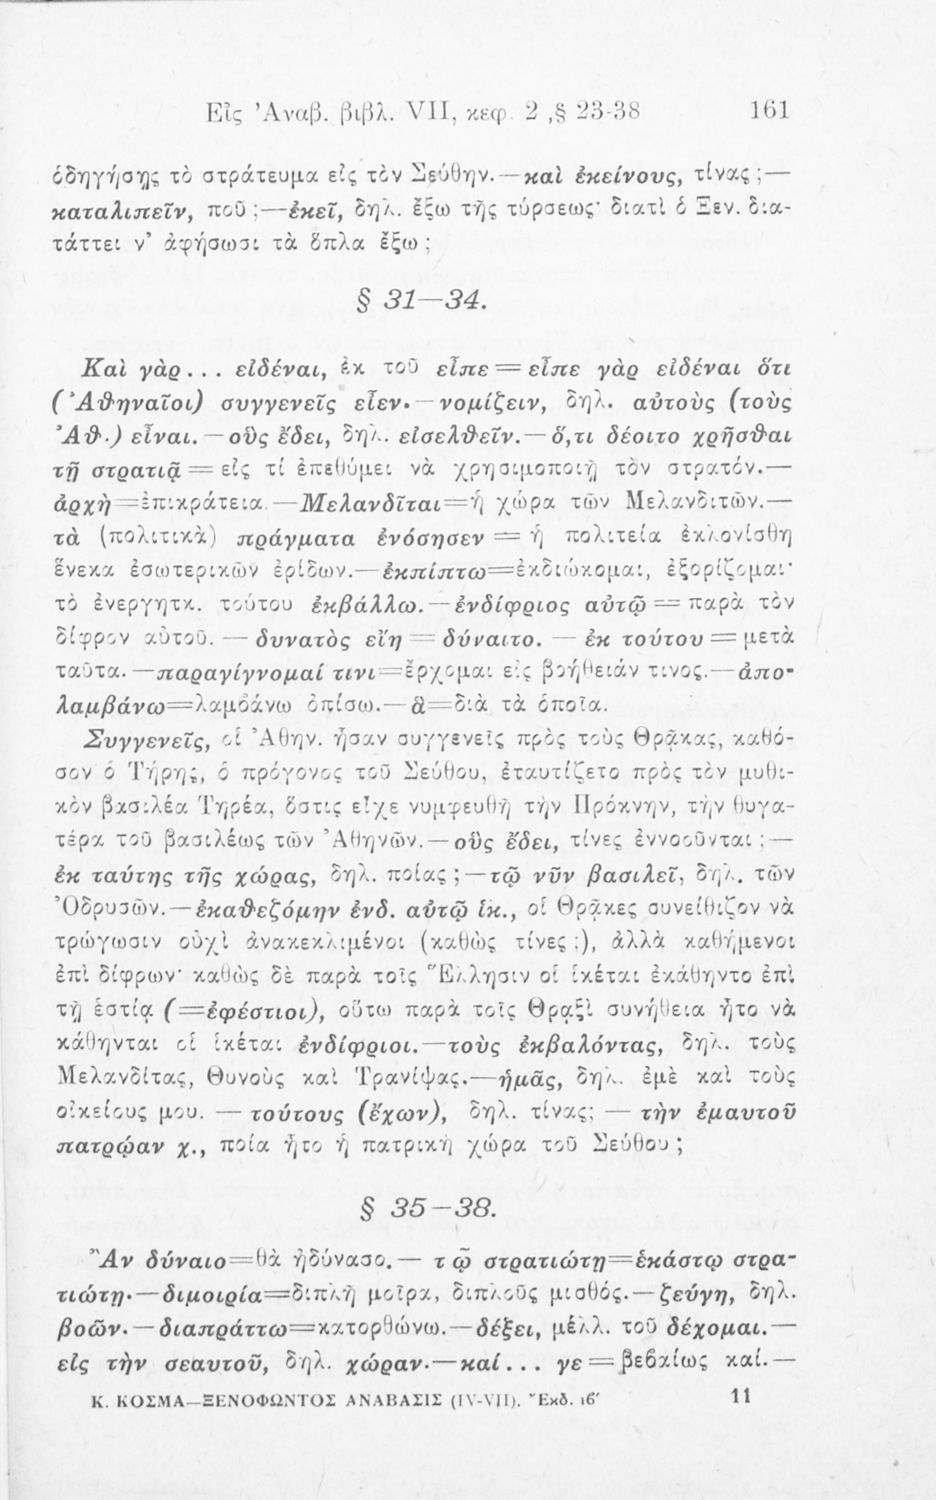 Εἰς Ἀναβ. βιβλ. VII, κεφ. 2, § 23-38 161
ὁδηγήσῃς τὸ στράτευμα εἰς τὸν Σεύθην.—καὶ ἐκείνους, τίνας;—
καταλιπεῖν, ποῦ;—ἐκεῖ, δηλ. ἔξω τῆς τύρσεως· διατὶ ὁ Ξεν. δια-
τάττει ν’ ἀφήσωσι τὰ ὅπλα ἔξω;
§ 31—34.
Καὶ γὰρ... εἰδέναι, ἐκ τοῦ εἶπε = εἶπε γὰρ εἰδέναι ὅτι
(Ἀθηναῖοι) συγγενεῖς εἶεν.—νομίζειν, δηλ. αὐτοὺς (τοὺς
Ἀθ.) εἶναι.—οὓς ἔδει, δηλ. εἰσελθεῖν.—ὅ,τι δέοιτο χρῆσθαι
τῇ στρατιᾷ = εἰς τί ἐπεθύμει νὰ χρησιμοποιῇ τὸν στρατόν.—
ἀρχὴ=ἐπικράτεια.—Μελανδῖται=ἡ χώρα τῶν Μελανδιτῶν.—
τὰ (πολιτικὰ) πράγματα ἐνόσησεν = ἡ πολιτεία ἐκλονίσθη
ἕνεκα ἐσωτερικῶν ἐρίδων.—ἐκπίπτω=ἐκδιώκομαι, ἐξορίζομαι·
τὸ ἐνεργητκ. τούτου ἐκβάλλω.—ἐνδίφριος αὐτῷ = παρὰ τὸν
δίφρον αὐτοῦ. — δυνατὸς εἴη = δύναιτο. — ἐκ τούτου = μετὰ
ταῦτα.—παραγίγνομαί τινι=ἔρχομαι εἰς βοήθειάν τινος.—ἀπο-
λαμβάνω=λαμβάνω ὀπίσω.—ἃ=διὰ τὰ ὁποῖα.
Συγγενεῖς, οἱ Ἀθην. ἦσαν συγγενεῖς πρὸς τοὺς Θρᾷκας, καθό-
σον ὁ Τήρης, ὁ πρόγονος τοῦ Σεύθου, ἐταυτίζετο πρὸς τὸν μυθι-
κὸν βασιλέα Τηρέα, ὅστις εἶχε νυμφευθῆ τὴν Πρόκνην, τὴν θυγα-
τέρα τοῦ βασιλέως τῶν Ἀθηνῶν.—οὓς ἔδει, τίνες ἐννοοῦνται;—
ἐκ ταύτης τῆς χώρας, δηλ. ποίας;—τῷ νῦν βασιλεῖ, δηλ. τῶν
Ὀδρυσῶν.—ἐκαθεζόμην ἐνδ. αὐτῷ ἱκ., οἱ Θρᾷκες συνείθιζον νὰ
τρώγωσιν οὐχὶ ἀνακεκλιμένοι (καθὼς τίνες;), ἀλλὰ καθήμενοι
ἐπὶ δίφρων· καθὼς δὲ παρὰ τοῖς Ἕλλησιν οἱ ἱκέται ἐκάθηντο ἐπὶ
τῇ ἑστίᾳ (=ἐφέστιοι), οὕτω παρὰ τοῖς Θρᾳξὶ συνήθεια ἦτο νὰ
κάθηνται οἱ ἱκέται ἐνδίφριοι.—τοὺς ἐκβαλόντας, δηλ. τοὺς
Μελανδίτας, Θυνοὺς καὶ Τρανίψας.—ἡμᾶς, δηλ. ἐμὲ καὶ τοὺς
οἰκείους μου. — τούτους (ἔχων), δηλ. τίνας; — τὴν ἐμαυτοῦ
πατρῴαν χ., ποία ἦτο ἡ πατρικὴ χώρα τοῦ Σεύθου;
§ 35—38.
Ἂν δύναιο=θὰ ἠδύνασο.— τῷ στρατιώτῃ=ἑκάστῳ στρα-
τιώτῃ.—διμοιρία=διπλῆ μοῖρα, διπλοῦς μισθός.—ζεύγη, δηλ.
βοῶν.—διαπράττω=κατορθώνω.—δέξει, μέλλ. τοῦ δέχομαι.—
εἰς τὴν σεαυτοῦ, δηλ. χώραν.—καί... γε = βεβαίως καί.—
Κ. ΚΟΣΜΑ—ΞΕΝΟΦΩΝΤΟΣ ΑΝΑΒΑΣΙΣ (IV-VII). Ἔκδ. ιϐ′ 11